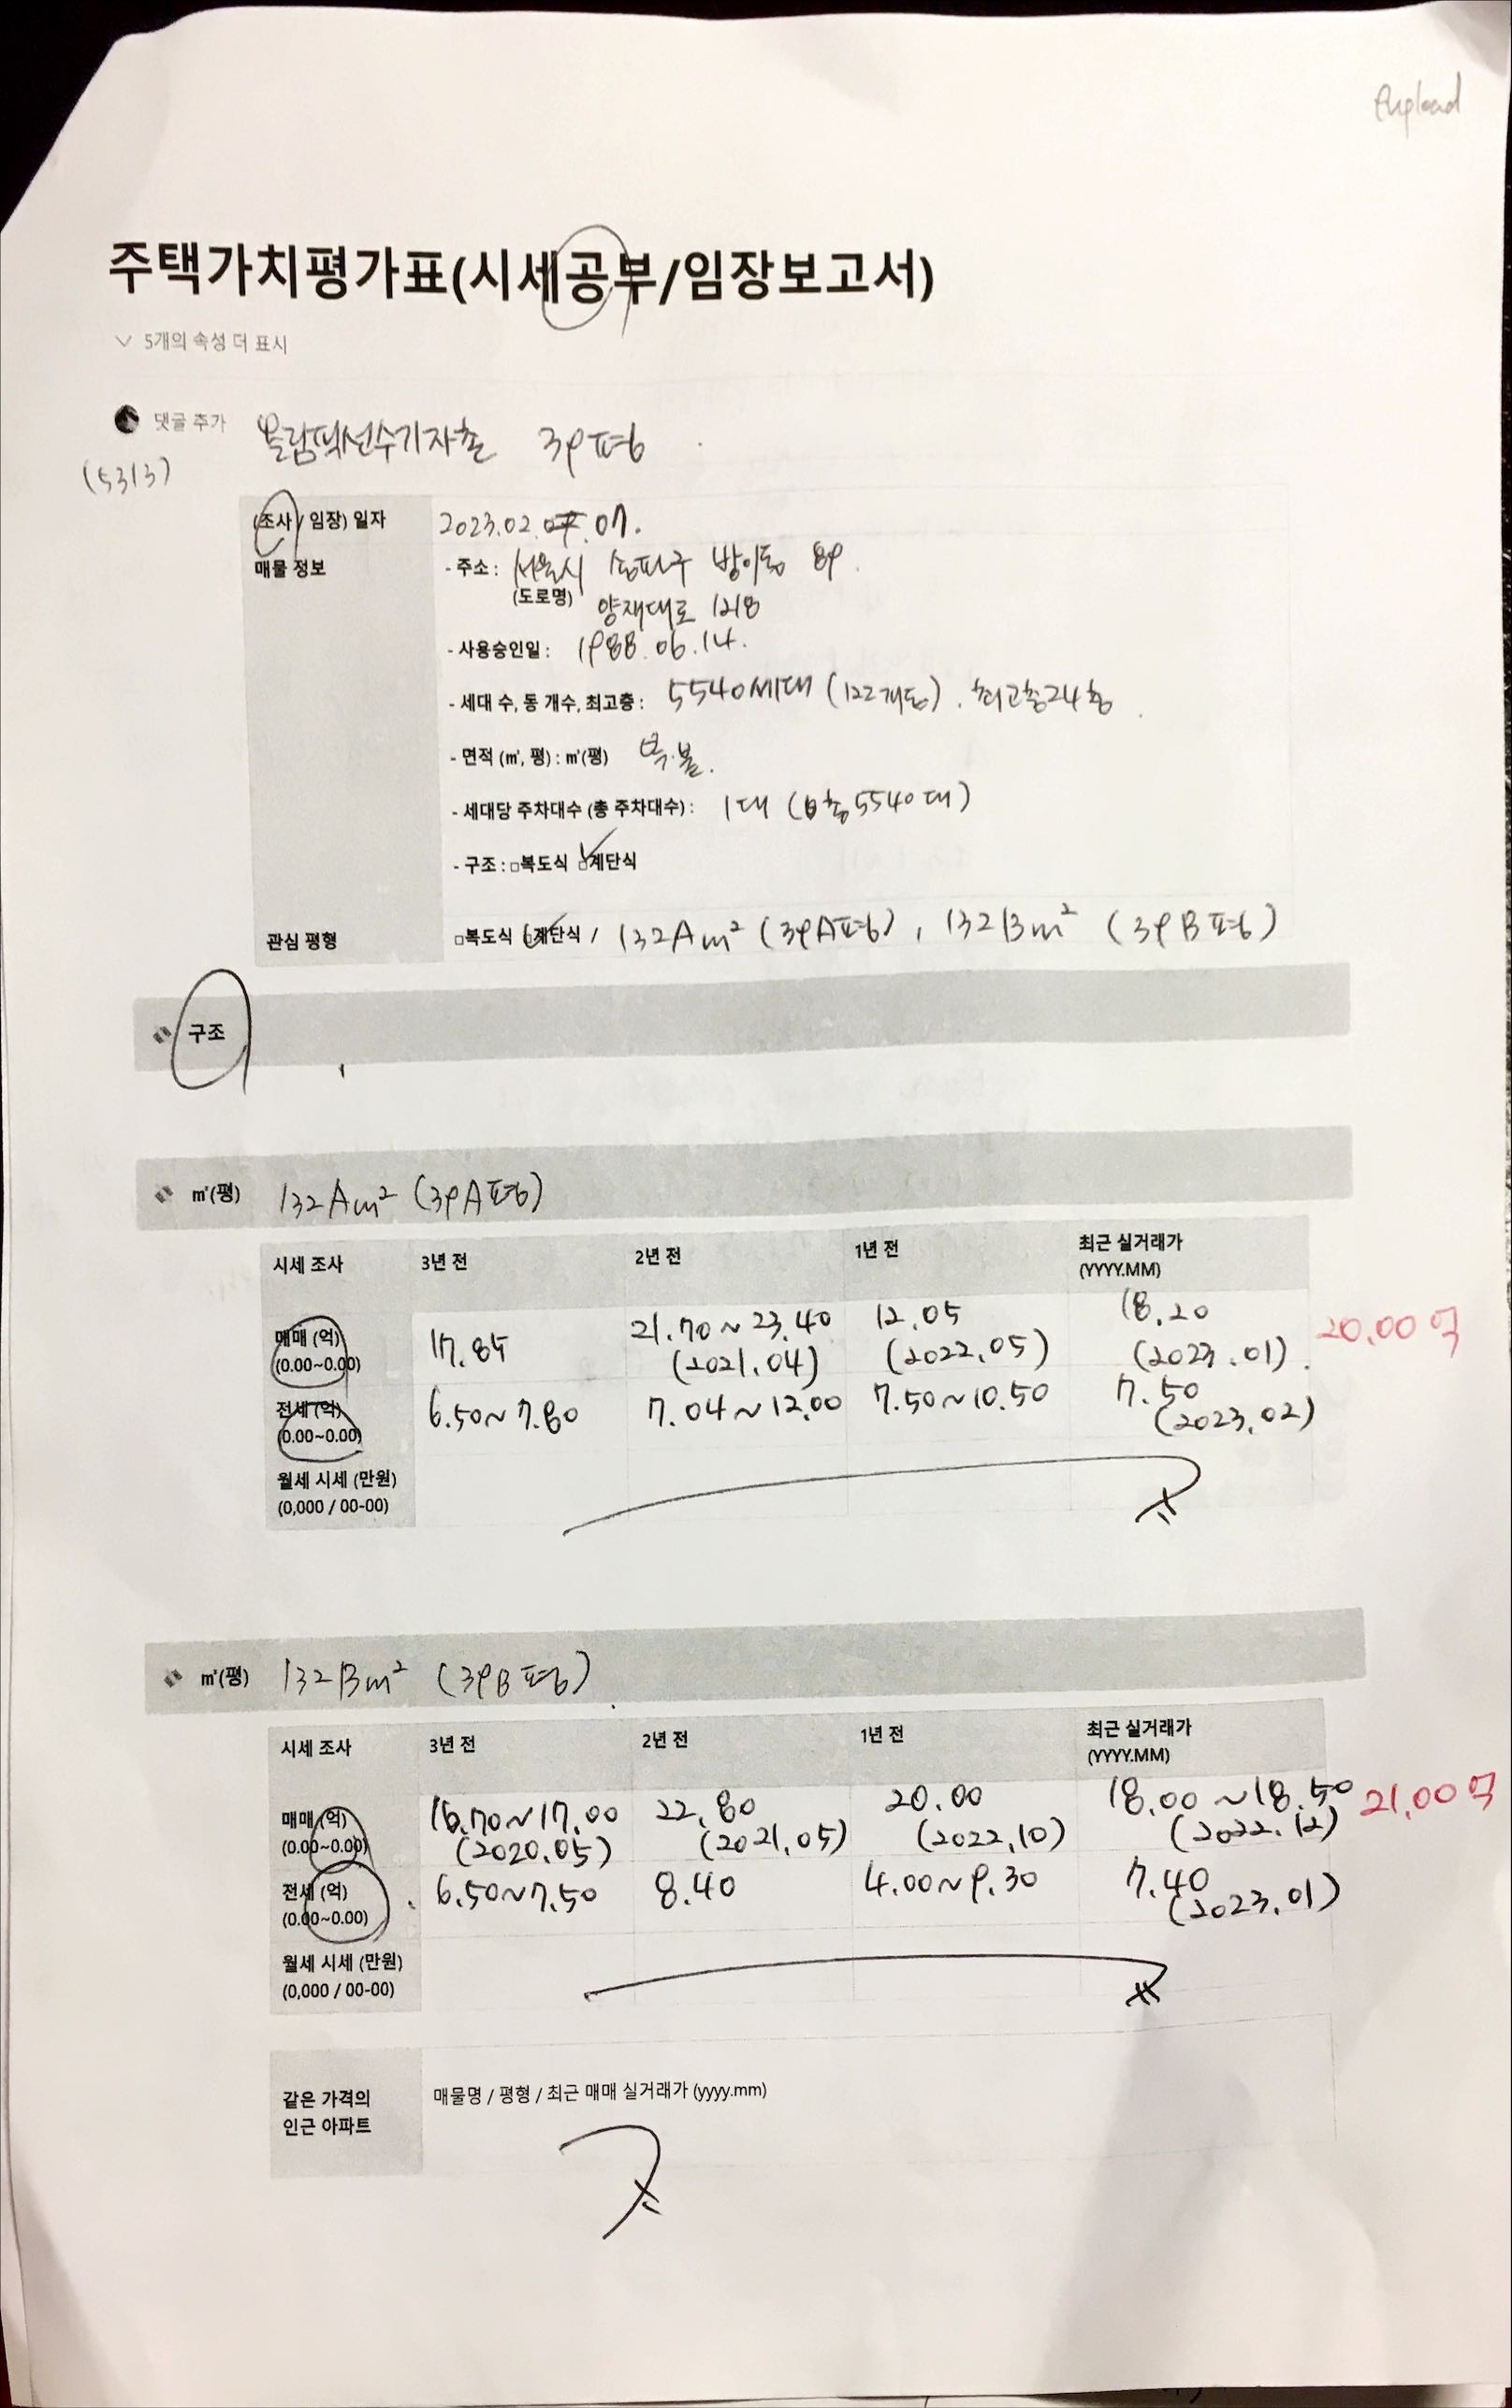 upload
주택가치평가표(시세공부/임장보고서)
5개의 속성 더 표시
댓글 추가 올림픽선수기자촌 39평
(5313)
(조사 / 임장) 일자 2023.02.07.
매물 정보 - 주소 : 서울시 송파구 방이동 89.
(도로명) 양재대로 1218
- 사용승인일 : 1988.06.14.
- 세대 수, 동 개수, 최고층 : 5540세대 (122개동). 최고층24층
- 면적 (㎡, 평) : ㎡(평)
- 세대당 주차대수 (총 주차대수) : 1대 (총5540대)
- 구조 : □복도식 □계단식
관심 평형 □복도식 □계단식 / 132Am² (39A평), 132Bm² (39B평)
구조
㎡(평) 132Am² (39A평)
시세 조사 3년 전 2년 전 1년 전 최근 실거래가
(YYYY.MM)
매매 (억) 17.85 21.70~23.40 12.05 18.20 20.00억
(0.00~0.00) (2021.04) (2022.05) (2023.01).
전세 (억) 6.50~7.80 7.04~12.00 7.50~10.50 7.50
(0.00~0.00) (2023.02)
월세 시세 (만원)
(0,000 / 00-00)
㎡(평) 132Bm² (39B평)
시세 조사 3년 전 2년 전 1년 전 최근 실거래가
(YYYY.MM)
매매 (억) 16.70~17.00 22.80 20.00 18.00~18.50 21.00억
(0.00~0.00) (2020.05) (2021.05) (2022.10) (2022.12)
전세 (억) 6.50~7.50 8.40 4.00~9.30 7.40
(0.00~0.00) (2023.01)
월세 시세 (만원)
(0,000 / 00-00)
같은 가격의 매물명 / 평형 / 최근 매매 실거래가 (yyyy.mm)
인근 아파트